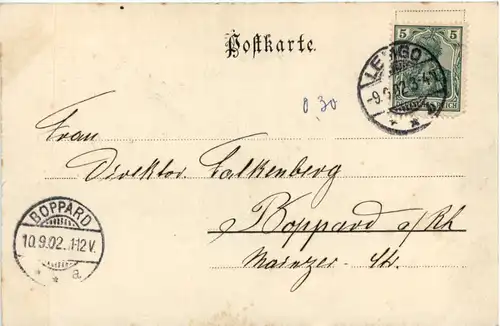 Postkarte.
5 5
LEMGO
-9.9.02.3-4N.
REICH
0,30
Frau
Direktor Falkenberg
Boppard a/Rh
Mainzer-Str.
BOPPARD
10.9.02.1-12V.
a